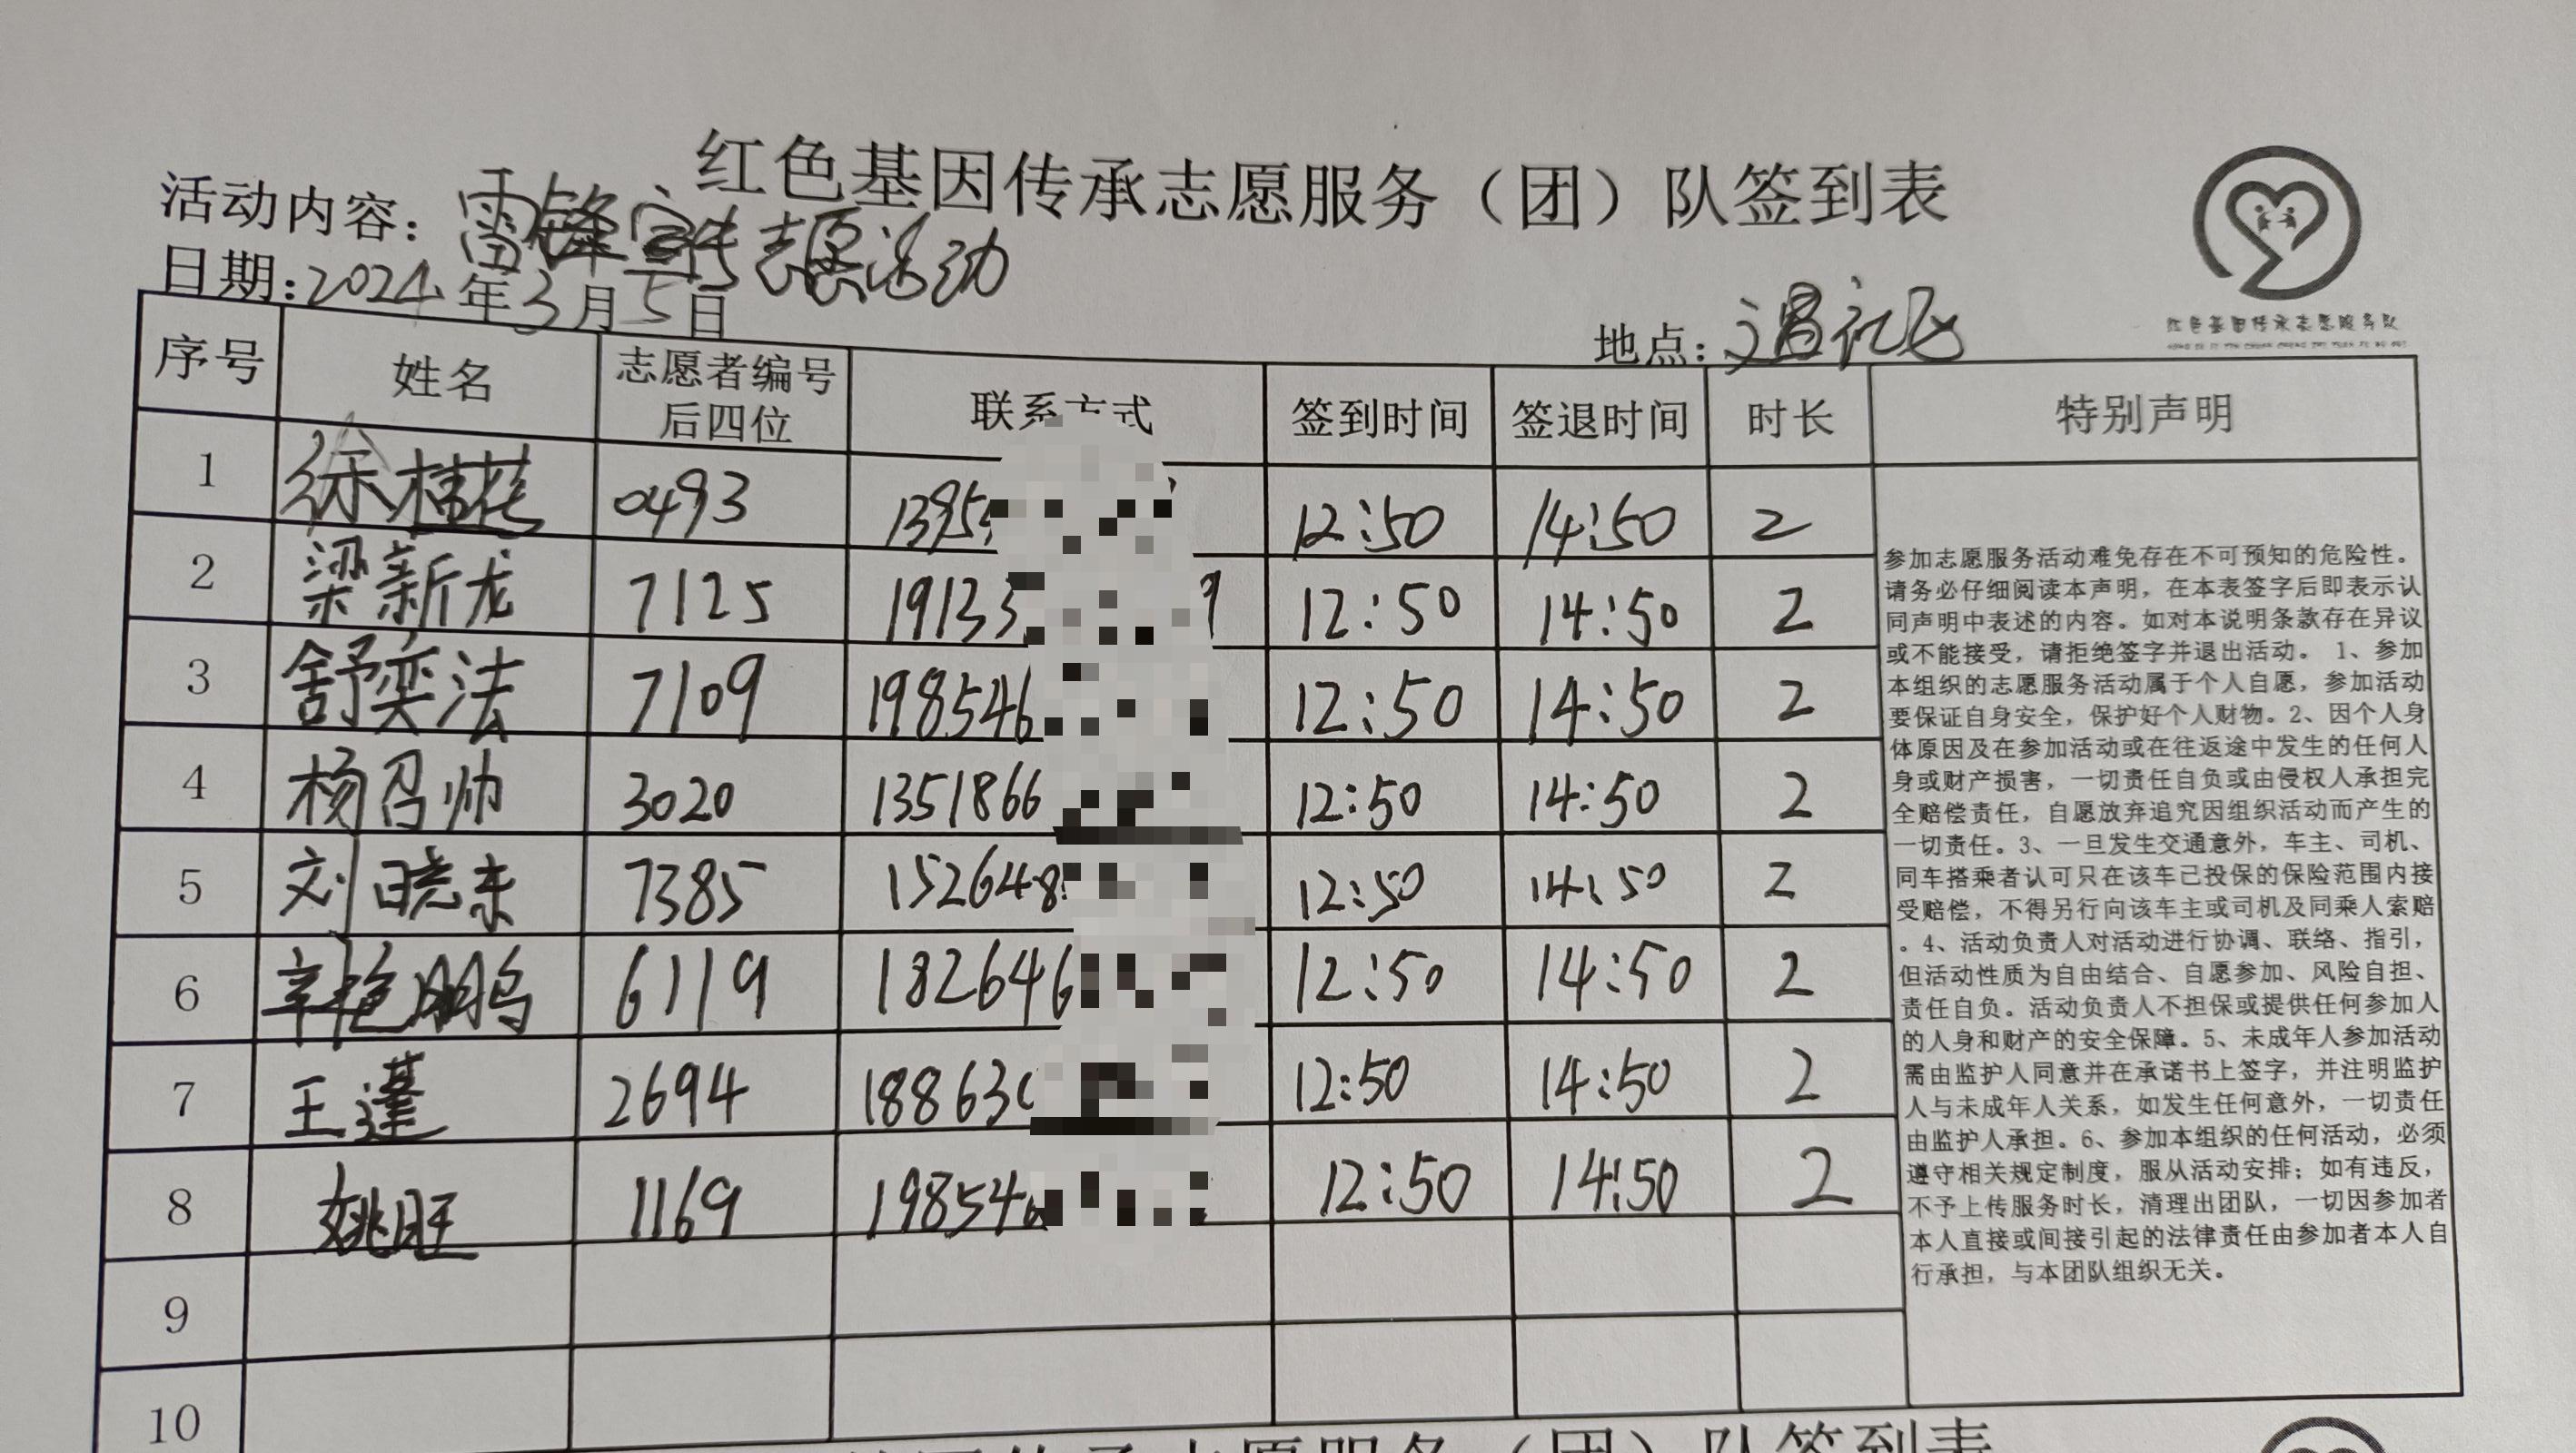 红色基因传承志愿服务（团）队签到表
活动内容：雷锋宣传志愿活动
日期：2024年3月5日
地点：
红色基因传承志愿服务队
序号 姓名 志愿者编号后四位 联系方式 签到时间 签退时间 时长 特别声明
1 徐桂花 0493 1395 12:50 14:50 2
2 梁新龙 7125 19133 9 12:50 14:50 2
3 舒奕法 7109 198546 12:50 14:50 2
4 杨召帅 3020 1351866 12:50 14:50 2
5 刘晓东 7385 152648 12:50 14:50 2
6 辛艳鹏 6119 182646 12:50 14:50 2
7 王蓬 2694 18863 12:50 14:50 2
8 姚旺 1169 19854 12:50 14:50 2
9
10
参加志愿服务活动难免存在不可预知的危险性。
请务必仔细阅读本声明，在本表签字后即表示认
同声明中表述的内容。如对本说明条款存在异议
或不能接受，请拒绝签字并退出活动。 1、参加
本组织的志愿服务活动属于个人自愿，参加活动
要保证自身安全，保护好个人财物。2、因个人身
体原因及在参加活动或在往返途中发生的任何人
身或财产损害，一切责任自负或由侵权人承担完
全赔偿责任，自愿放弃追究因组织活动而产生的
一切责任。3、一旦发生交通意外，车主、司机、
同车搭乘者认可只在该车已投保的保险范围内接
受赔偿，不得另行向该车主或司机及同乘人索赔
。4、活动负责人对活动进行协调、联络、指引，
但活动性质为自由结合、自愿参加、风险自担、
责任自负。活动负责人不担保或提供任何参加人
的人身和财产的安全保障。5、未成年人参加活动
需由监护人同意并在承诺书上签字，并注明监护
人与未成年人关系，如发生任何意外，一切责任
由监护人承担。6、参加本组织的任何活动，必须
遵守相关规定制度，服从活动安排；如有违反，
不予上传服务时长，清理出团队，一切因参加者
本人直接或间接引起的法律责任由参加者本人自
行承担，与本团队组织无关。
（团）队签到表